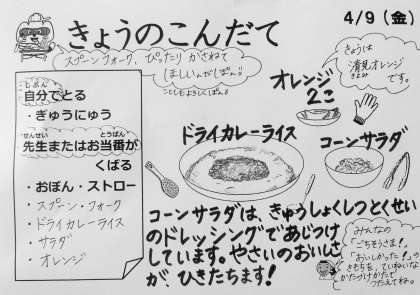 きょうのこんだて
4/9（金）
スプーンフォーク、ぴったり かさねて
ほしいんだしぱん♪
ことしもよろしくぱん♪
きょうは
清見オレンジ
きよみ
です。
オレンジ
2こ
じぶん
自分でとる
・ぎゅうにゅう
せんせい とうばん
先生またはお当番が
くばる
・おぼん・ストロー
・スプーン・フォーク
・ドライカレーライス
・サラダ
・オレンジ
ドライカレーライス
コーンサラダ
コーンサラダは、きゅうしょくしつとくせい
のドレッシングであじつけ
しています。やさいのおいしさ
が、ひきたちます！
みんなの
「ごちそうさま！」
「おいしかった！」の
きもちを、ていねいな
かたづけかたで
つたえてね